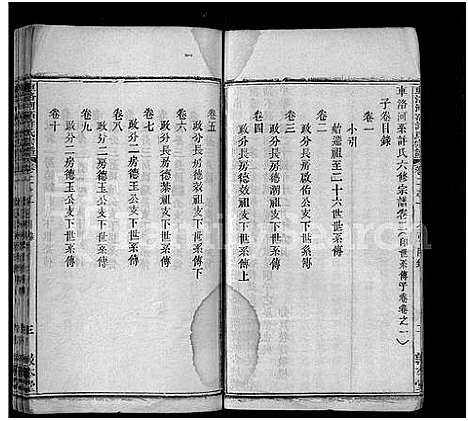 車洛河萊許氏六修宗譜卷二(即世系傳子卷卷之一)
子卷目錄
卷一
小引
卷二
始遷祖至二十六世世系傳
卷三
政分長房啟佑公支下世系傳
卷四
政分長房德潮祖支下世系傳
政分長房德效祖支下世系傳上
卷五
政分長房德效祖支下世系傳下
卷六
政分長房德榮祖支下世系傳
卷七
政分二房德玉公支下世系傳
卷八
政分二房德玉公支下世系傳
卷九
政分二房德玉公支下世系傳
卷十
敦本堂
FamilySearch